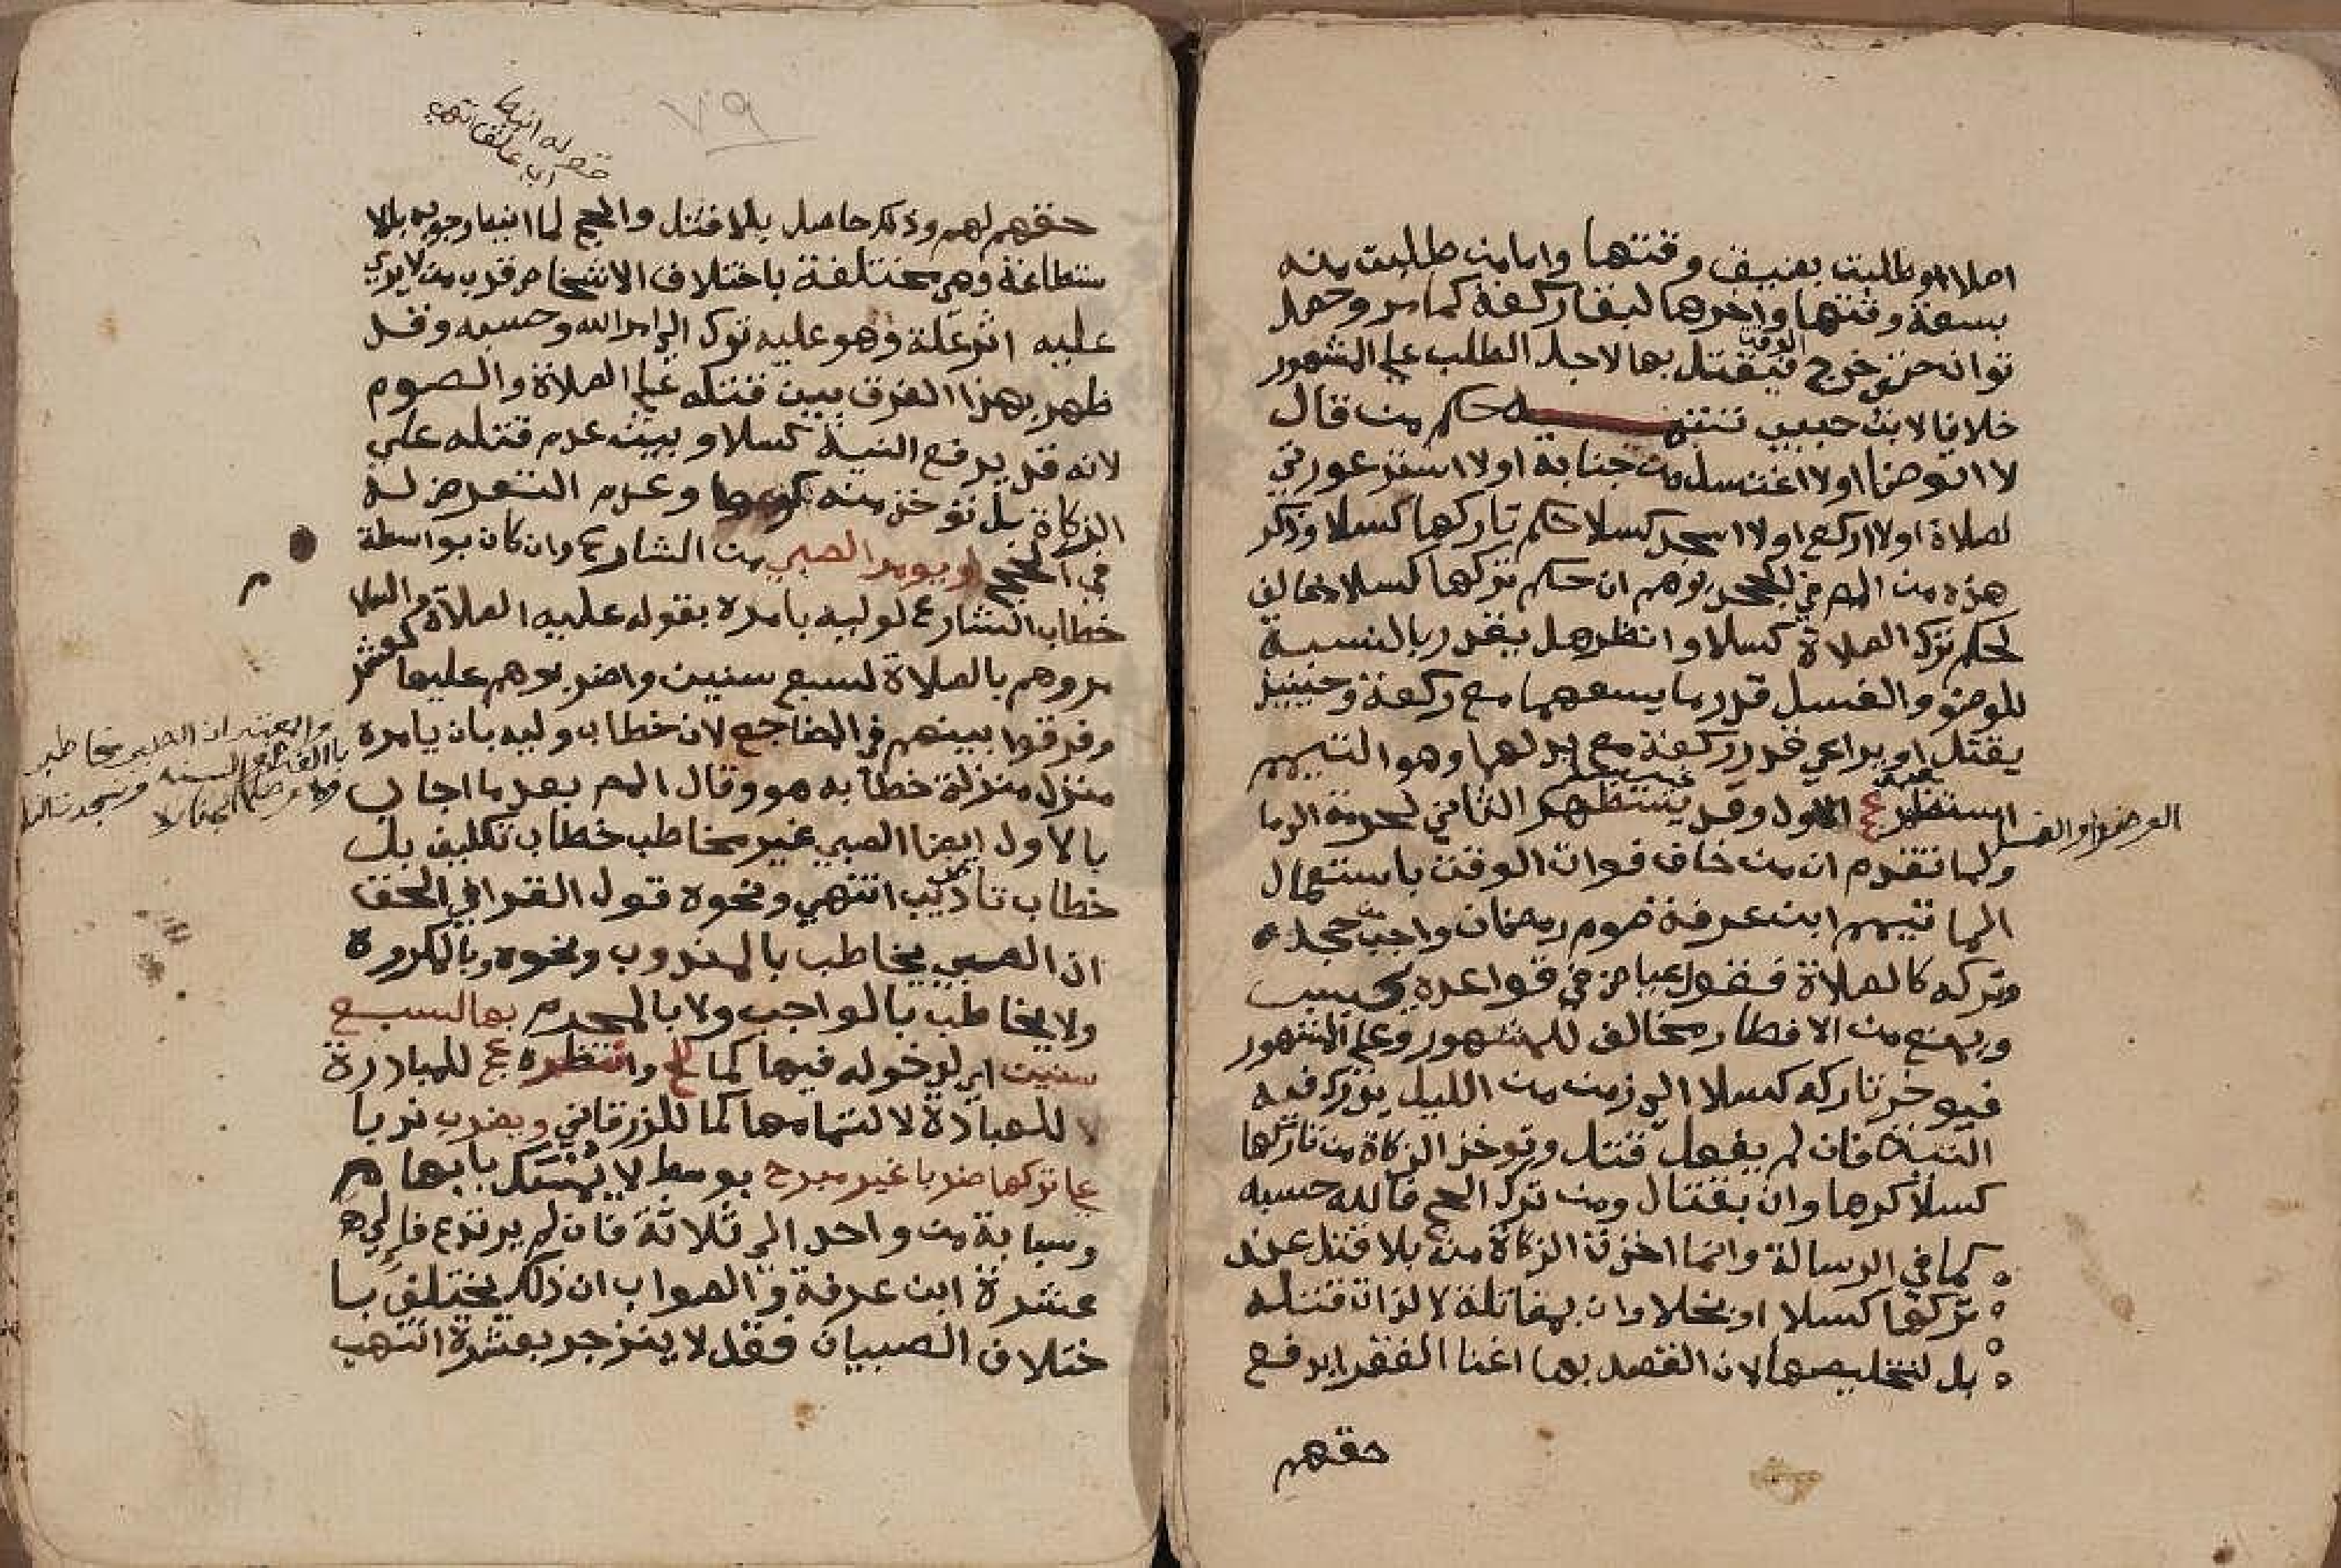 اصلا او طلبت بضيق وقتها واما من طلبت منه
بسعة وقتها واخرها لبقا ركعة كما مر وحصل
توانـ حتى خرج الوقت فيقتل بها لاجل الطلب على المشهور
خلافا لابن حبيب تنبيه حكم من قال
لا اتوضا او لا اغتسل من جنابة او لا استر عورتي
لصلاة او لا اركع او لا اسجد كسلا حكم تاركها كسلا وذكر
هذه من المص في الجحد يوهم ان حكم تركها كسلا مخالف
لحكم ترك الصلاة كسلا وانظر هل يقدر بالنسبة
للوضؤ والغسل قدر ما يسعهما مع ركعة وحينيذ
يقتل او يراعي قدر ركعة مع بدلهما وهو التيمم
استظهر عج الاول وقد يستظهر الثاني لحرمة الدما
الوضوء والغسل
ولما تقدم ان من خاف فوات الوقت باستعمال
الما تيمم ابن عرفة صوم رمضان واجب جحده
وتركه كالصلاة فقول عياض في قواعده يحبس
ويمنع من الافطار مخالف للمشهور وعلى المشهور
فيوخر تاركه كسلا الى زمن من الليل يوقع فيه
النية فان لم يفعل قتل وتوخذ الزكاة من تاركها
كسلا كرها وان بقتال ومن ترك الحج فالله حسبه
كما في الرسالة وانما اخذت الزكاة منه بلا قتل عند
تركها كسلا او بخلا وان بمقاتلة لا لذات قتله
بل لتخليصها لان القصد بها اغنا الفقرا بدفع
حقهم
٧٩
قوله انبها
اي علق انتهى
حقهم لهم وذلك حاصل بلا قتل والحج لما انبها وجوبه بالا
ستطاعة وهي مختلفة باختلاف الاشخاص فرب من لا يرى
عليه اثر علة وهو عليه توكل الى امر الله وحسبه وقد
ظهر بهذا الفرق بين قتله على الصلاة والصوم
لانه قد يدفع النية كسلا وبين عدم قتله على
الزكاة بل توخذ منه كرها وعدم التعرض له
في الحج ويومر الصبي من الشارع وان كان بواسطة
خطاب الشارع لوليه بامره بقوله عليه الصلاة والسلا
مروهم بالصلاة لسبع سنين واضربوهم عليها لعشر
وفرقوا بينهم في المضاجع لان خطاب وليه بان يامره
منزل منزلة خطابه هو وقال المص بعد ما اجاب
والمعتمد ان الصبي مخاطب
بالاول ايضا الصبي غير مخاطب خطاب تكليف بل
خطاب تاديب انتهى ونحوه قول القرافي الحق
ان الصبي يخاطب بالمندوب ونحوه وبالمكروه
ولا يخاطب بالواجب ولا بالمحرم بها لسبع
سنين اي لدخوله فيها كما لح وانتظره عج للمبادرة
للعبادة لا لتمامها كما للزرقاني ويضرب ندبا
على تركها ضربا غير مبرح بوسط لا بابها م
وسبابة من واحد الى ثلاثة فان لم يرتدع فالى
عشرة ابن عرفة والصواب ان ذلك يختلف با
ختلاف الصبيان فقد لا ينزجر بعشرة انتهى